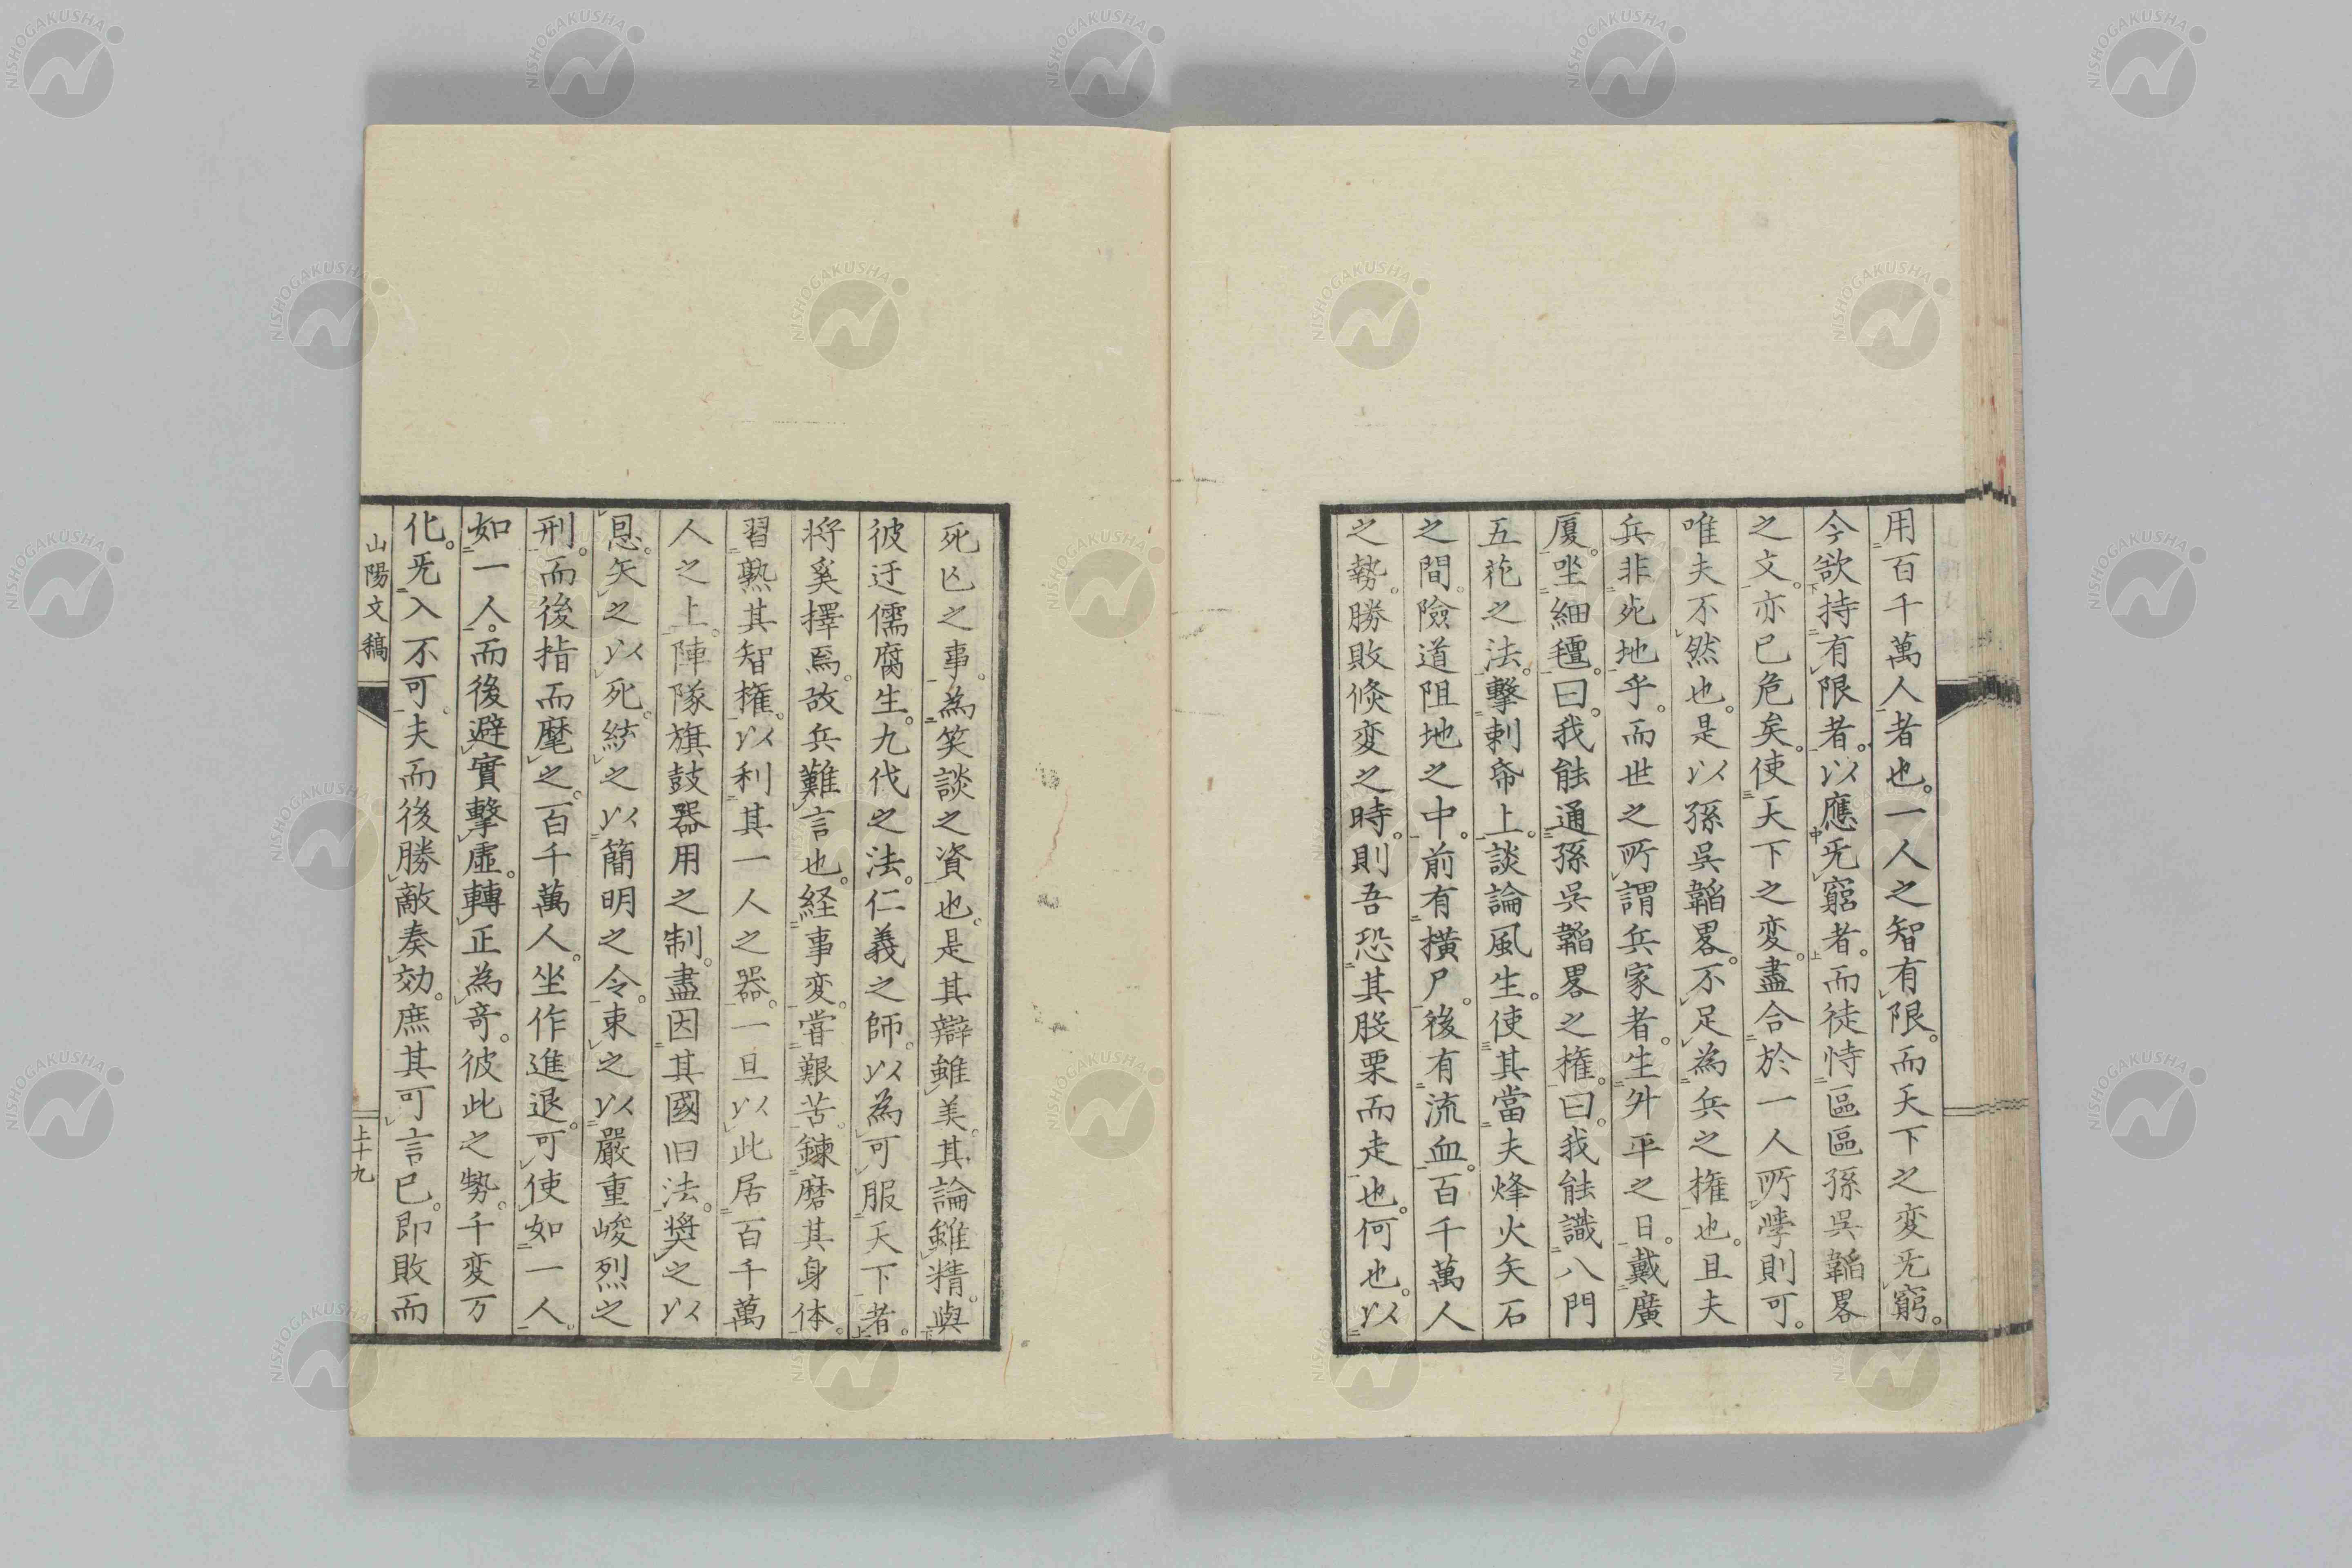 用百千萬人者也。一人之智有限。而天下之変旡窮。
今欲持有限者。以應旡窮者。而徒恃區區孫吳韜畧
之文。亦已危矣。使天下之変。盡合於一人所学則可。
唯夫不然也。是以孫吳韜畧。不足為兵之権也。且夫
兵非死地乎。而世之所謂兵家者。生升平之日。戴廣
厦。坐細氈。曰。我能通孫吳韜畧之権。曰。我能識八門
五花之法。擊刺帋上。談論風生。使其當夫烽火矢石
之間。險道阻地之中。前有橫尸。後有流血。百千萬人
之勢。勝敗倏変之時。則吾恐其股栗而走也。何也。以
死亾之事。為笑談之資也。是其辯雖美。其論雖精。與
彼迂儒腐生。九伐之法。仁義之師。以為可服天下者。
將奚擇焉。故兵難言也。経事変。嘗艱苦。鍊磨其身体。
習熟其智権。以利其一人之器。一旦以此居百千萬
人之上。陣隊旗鼓器用之制。盡因其國旧法。奨之以
恩。矢之以死。統之以簡明之令。束之以嚴重峻烈之
刑。而後指而麾之。百千萬人。坐作進退。可使如一人。
如一人。而後避實擊虛。轉正為奇。彼此之勢。千変万
化。旡入不可。夫而後勝敵奏効。庶其可言已。即敗而
山陽文稿
上十九
NISHOGAKUSHA